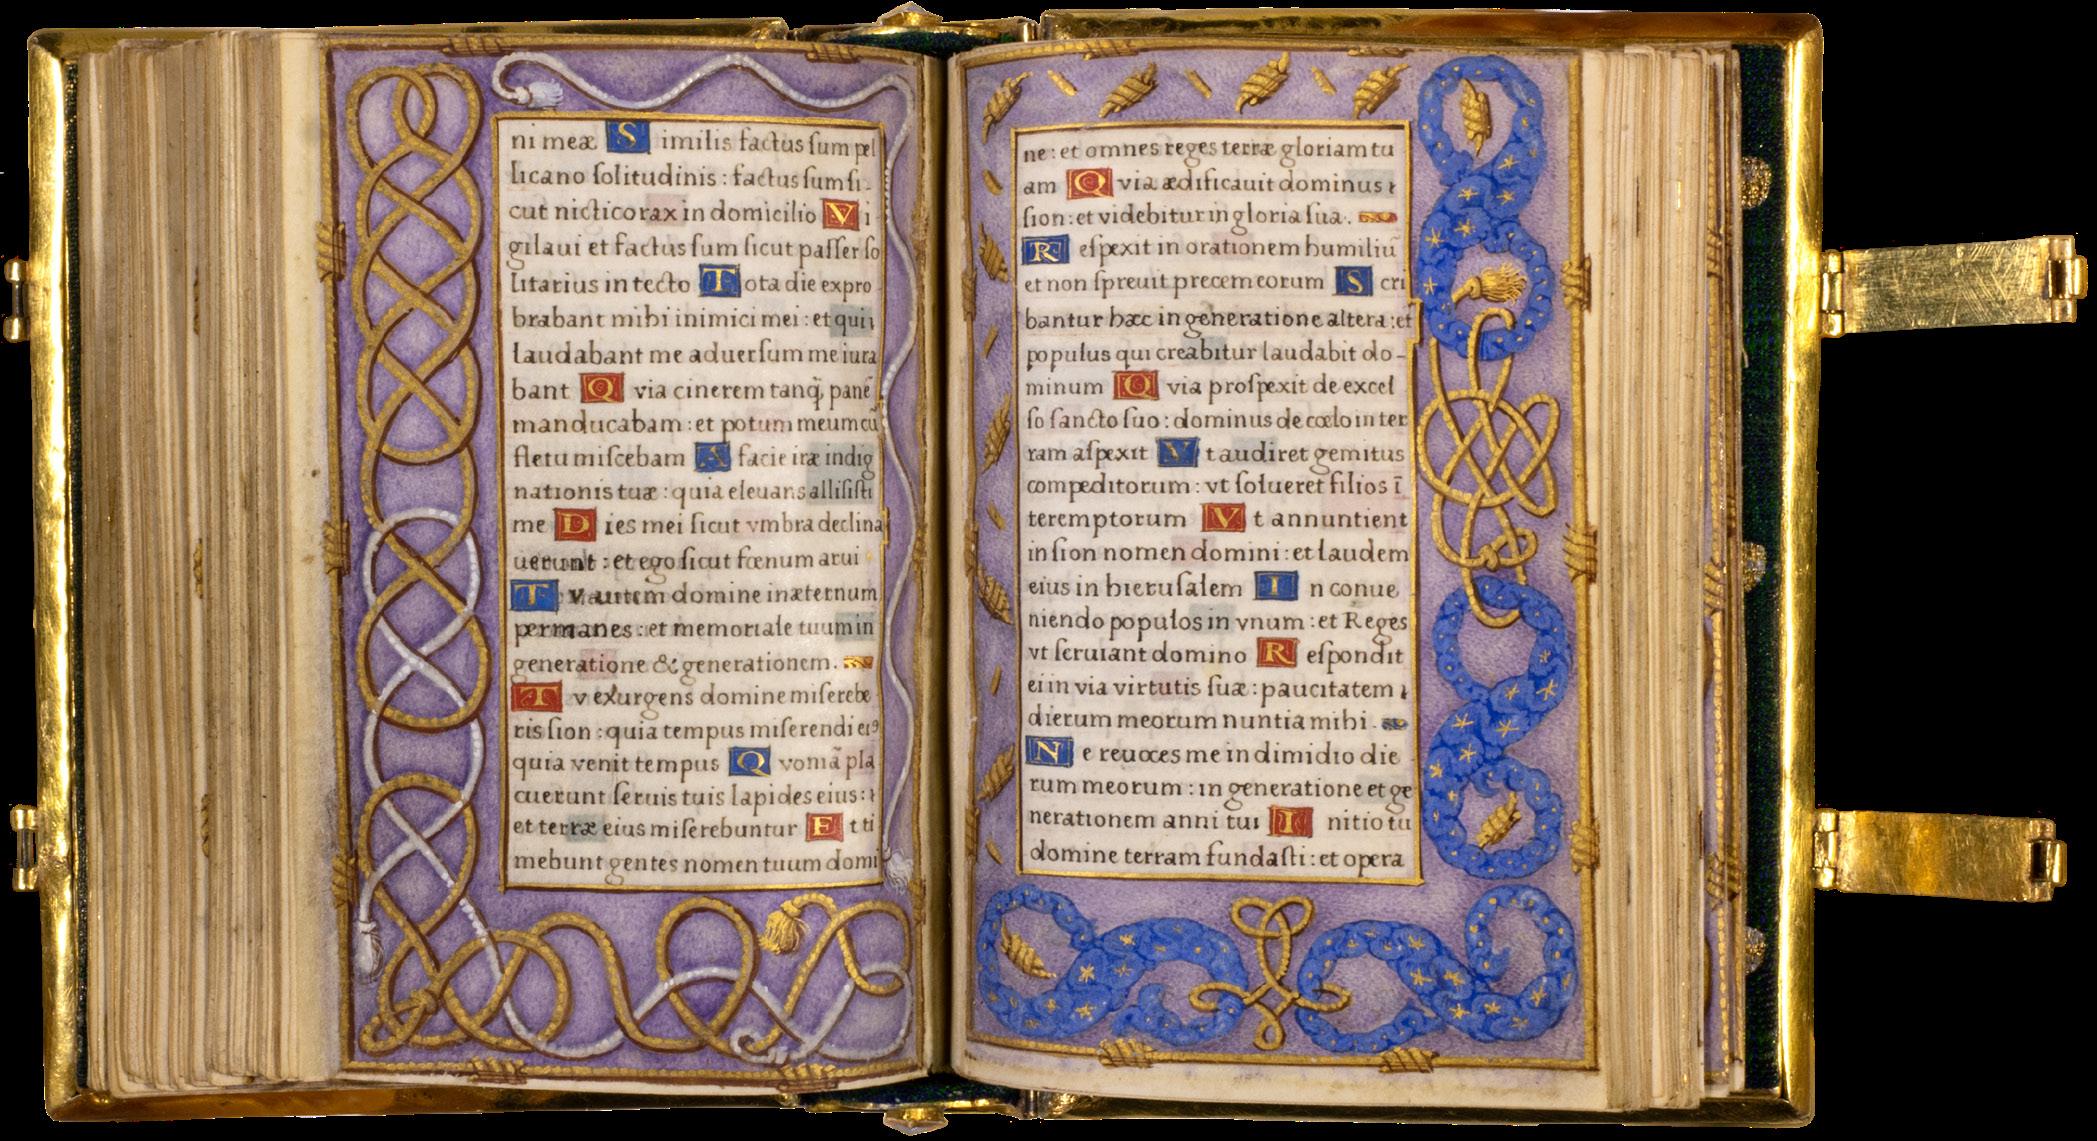 ni meæ S imilis factus sum pel
licano solitudinis : factus sum si-
cut nicticorax in domicilio V i
gilaui et factus sum sicut passer so
litarius in tecto T ota die expro
brabant mihi inimici mei : et qui
laudabant me aduersum me iura
bant Q via cinerem tanq̃ panẽ
manducabam : et potum meum cũ
fletu miscebam A facie iræ indig
nationis tuæ : quia eleuans allisisti
me D ies mei sicut vmbra declina
uerunt : et ego sicut fœnum arui
T v autem domine in æternum
permanes : et memoriale tuum in
generatione & generationem.
T v exurgens domine miserebe
ris sion : quia tempus miserendi eiꝰ
quia venit tempus Q voniã pla
cuerunt seruis tuis lapides eius : ⁊
et terræ eius miserebuntur E t ti
mebunt gentes nomen tuum domi
ne : et omnes reges terræ gloriam tu
am Q via ædificauit dominus ⁊
sion : et videbitur in gloria sua .
R espexit in orationem humiliũ
et non spreuit precem eorum S cri
bantur hæc in generatione altera : et
populus qui creabitur laudabit do-
minum Q via prospexit de excel
so sancto suo : dominus de cœlo in ter
ram aspexit V t audiret gemitus
compeditorum : vt solueret filios ĩ
teremptorum V t annuntient
in sion nomen domini : et laudem
eius in hierusalem I n conue
niendo populos in vnum : et Reges
vt seruiant domino R espondit
ei in via virtutis suæ : paucitatem ⁊
dierum meorum nuntia mihi .
N e reuoces me in dimidio die
rum meorum : in generatione et ge
nerationem anni tui I nitio tu
domine terram fundasti : et opera